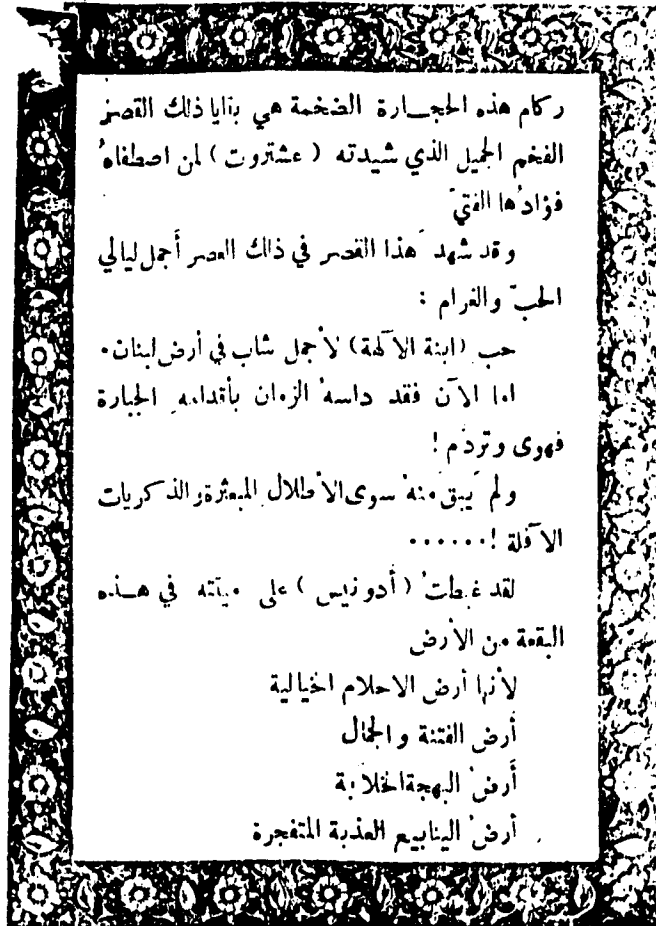 ركام هذه الحجـــارة الضخمة هي بقايا ذلك القصر
الفخم الجميل الذي شيدته ( عشتروت ) لمن اصطفاهُ
فؤادُها الفتيّ
وقد شهد هذا القصر في ذلك العصر أجمل ليالي
الحبّ والغرام :
حب (ابنة الآلهة) لأجمل شاب في أرض لبنان.
اما الآن فقد داسهُ الزمان بأقدامه الجبارة
فهوى وتردّم !
ولم يبق منهُ سوى الأطلال المبعثرة والذكريات
الآفلة !......
لقد غبطتُ ( أدونيس ) على ميتته في هـــذه
البقعة من الأرض
لأنها أرض الاحلام الخيالية
أرض الفتنة والجمال
أرضُ البهجة الخلاّبة
أرضُ الينابيع العذبة المتفجرة